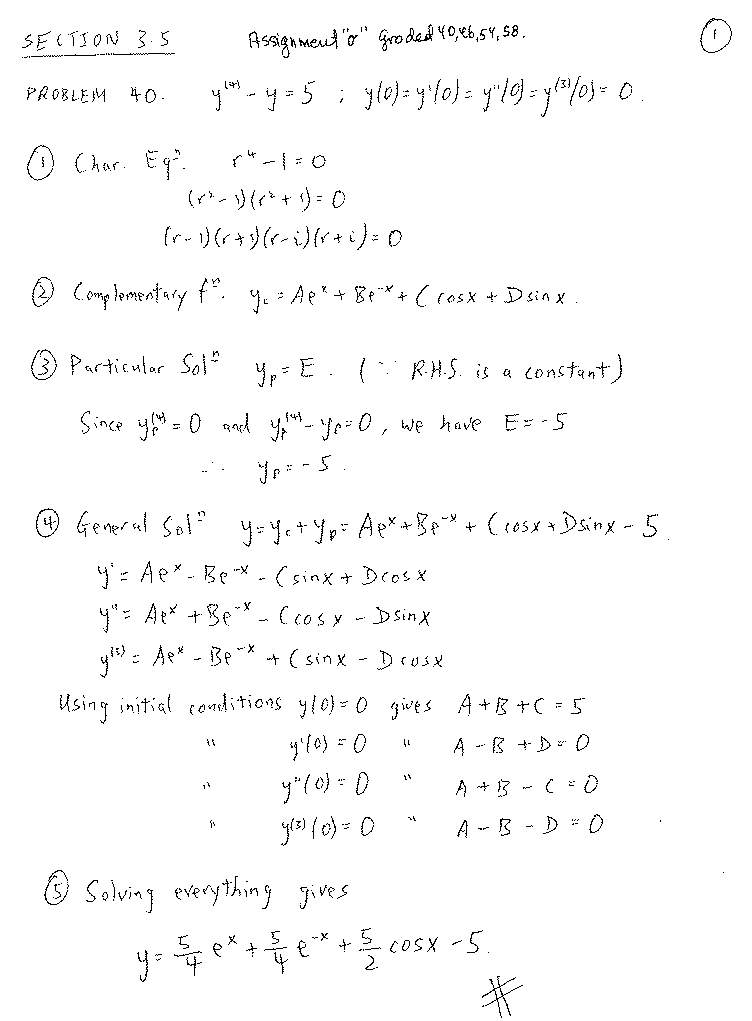 SECTION 3.5 Assignment "0" graded 40,46,54,58. ①
PROBLEM 40. y⁽⁴⁾ - y = 5 ; y(0) = y'(0) = y"(0) = y⁽³⁾(0) = 0.
① Char. Eqⁿ. r⁴ - 1 = 0
(r² - 1)(r² + 1) = 0
(r - 1)(r + 1)(r - i)(r + i) = 0
② Complementary fⁿ. y_c = Ae^x + Be^-x + C cosx + D sinx.
③ Particular Solⁿ y_p = E. (∵ R.H.S. is a constant)
Since y_p⁽⁴⁾ = 0 and y_p⁽⁴⁾ - y_p = 0, we have E = -5
∴ y_p = -5.
④ General Solⁿ y = y_c + y_p = Ae^x + Be^-x + C cosx + D sinx - 5
y' = Ae^x - Be^-x - C sinx + D cosx
y" = Ae^x + Be^-x - C cosx - D sinx
y⁽³⁾ = Ae^x - Be^-x + C sinx - D cosx
Using initial conditions y(0) = 0 gives A + B + C = 5
" y'(0) = 0 " A - B + D = 0
" y"(0) = 0 " A + B - C = 0
" y⁽³⁾(0) = 0 " A - B - D = 0
⑤ Solving everything gives
y = 5/4 e^x + 5/4 e^-x + 5/2 cosx - 5.
#